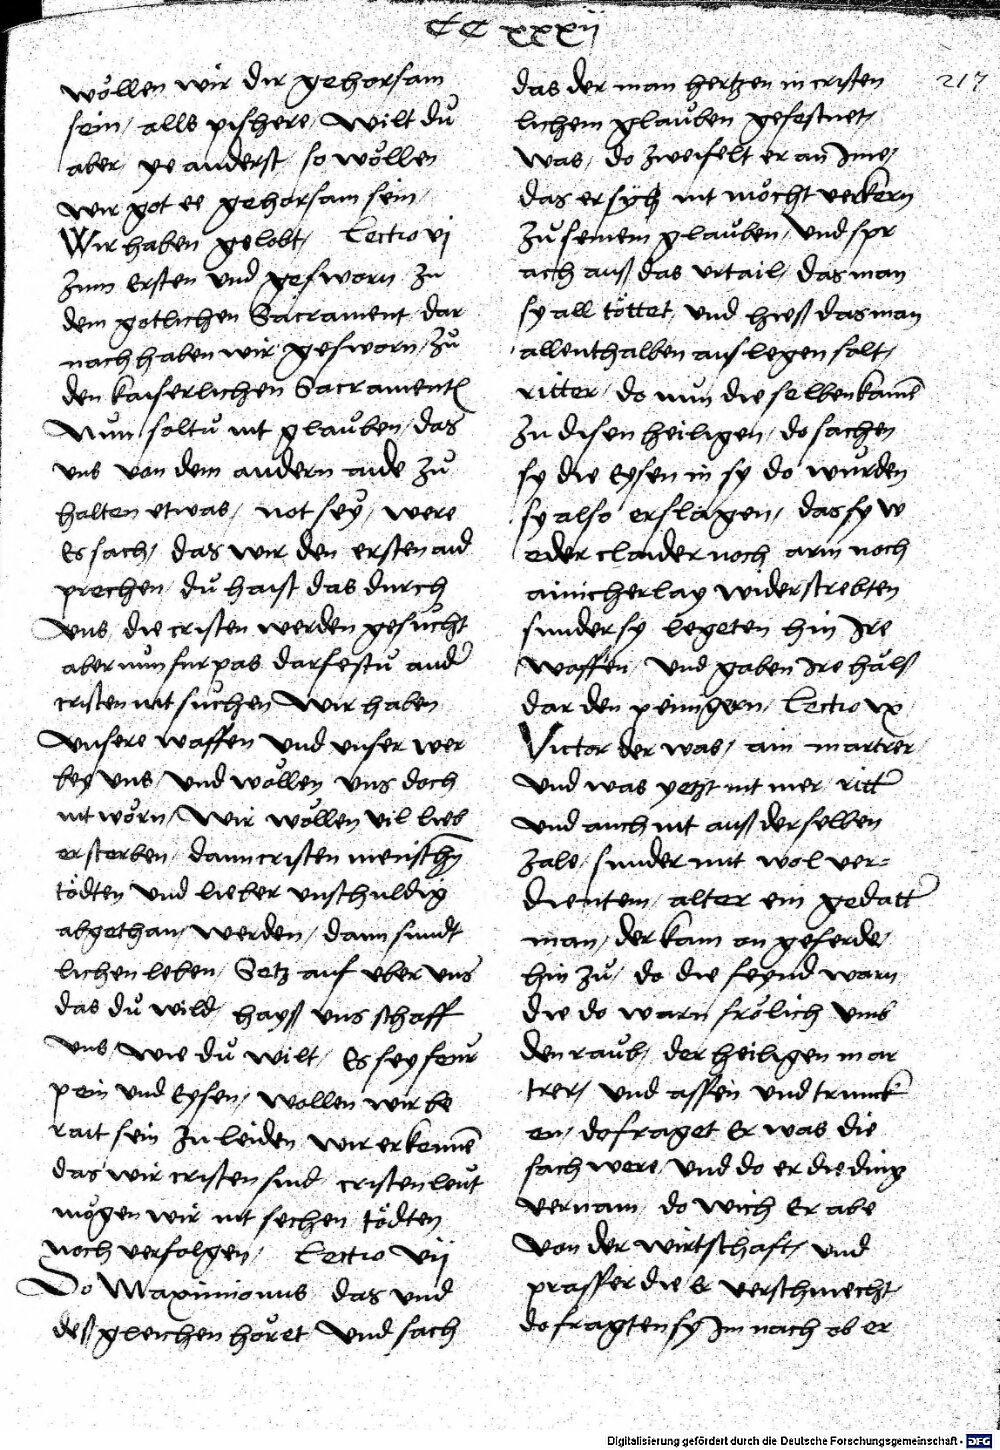 CC xxxij
217
wöllen wir dir gehorsam
sein / alls pishere / Wilt dů
aber / ye anderst / so wöllen
wir got ee gehorsam sein /
Wir haben gelobt / Lectio vj
zum Ersten vnd gesworn zu
dem gotlichen Sacrament dar
nach haben wir gesworn / zů
den kaiserlichen Sacrament
Nun soltu nit glauben / das
vns von dem andern aide zů
halten etwas / not sey / were
Es sach / das wir den ersten aid
prechen / dů haist das durch
vns / die cristen werden gesůcht
aber nun fur pas darfestu ander
cristen nit sůchen Wir haben
vnsere waffen vnd vnser wer
bey vns / vnd wöllen vns doch
nit wörn / Wir wöllen vil lieb
er sterben / dann cristen menschen
tödten vnd lieber vnschuldig
abgethan / werden / dann sundt
lichen leben / Setz auf vber vns
das dů wild / hayß vns schaff
vns / wie dů wilt / Es sey feur
pein vnd Eysen / wollen wir be
rait sein zu leiden wir erkennē
das wir cristen sind / cristen leut
mögen wir nit sechen tödten
noch verfolgen / Lectio vij
Do Maximionus das vnd
deßgleichen höret Vnd sach
das der man hertzen in cristen
lichem glauben gefestnet /
was / do zweifelt er an Ime /
das er sych nit möcht verkern
zů seinem glauben / vnd spr
ach auß das vrtail / das man
sy all töttet / vnd hieß das man
allenthalben auslegen solt /
ritter / do nun die selben kamē
zu disen heiligen / do sachen
sy die Eysen in sy do wurden
sy also erslagen / das sy w
eder claider noch arm noch
ainicherlay widerstrebten
sunder sy legeten hin Ire
waffen / vnd gaben Ire hälß
dar den peinigern / Lectio ix
Victor der was / ain martrer /
vnd was yetzt nit mer ritter
vnd auch nit auß derselben
zale / sunder mit wol ver=
dientem / alter ein gedatter
man / der kam on geferde /
hin zů / do die feynd warn
die do warn frölich vmb
den raub / der heiligen mar
trer / vnd assen vnd trunck
en / do fraget Er was die
sach were / vnd do er die ding
vernam / do wich Er abe
von der wirtschaft / vnd
prasser die Er verschmecht /
do fragten sy Im nach ob er
Digitalisierung gefördert durch die Deutsche Forschungsgemeinschaft - DFG